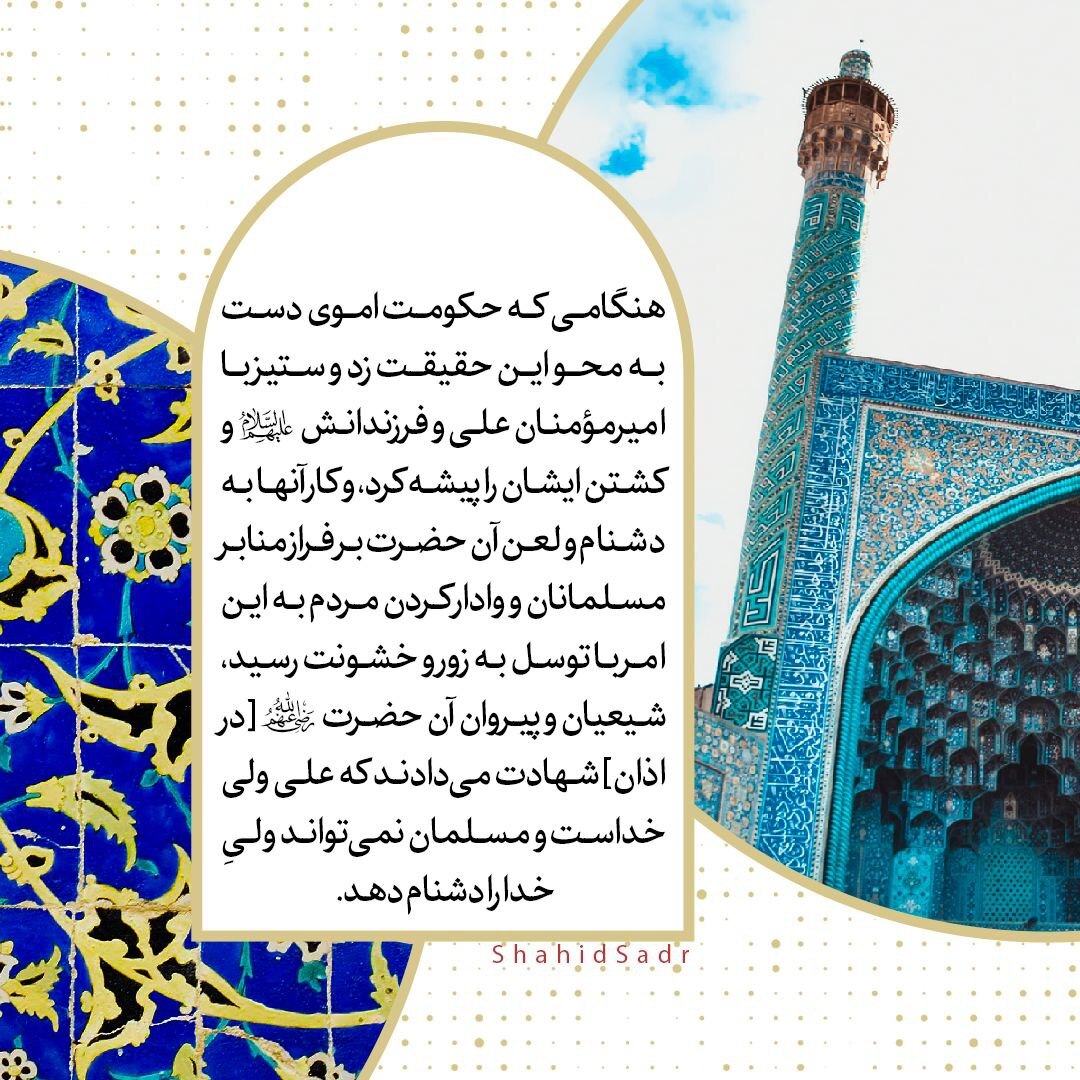 هنگامی که حکومت اموی دست
به محو این حقیقت زد و ستیز با
امیرمؤمنان علی و فرزندانش علیهم‌السلام و
کشتن ایشان را پیشه کرد، و کار آنها به
دشنام و لعن آن حضرت بر فراز منابر
مسلمانان و وادار کردن مردم به این
امر با توسل به زور و خشونت رسید،
شیعیان و پیروان آن حضرت رضی‌الله‌عنهم [در
اذان] شهادت می‌دادند که علی ولی
خداست و مسلمان نمی‌تواند ولیِ
خدا را دشنام دهد.
ShahidSadr